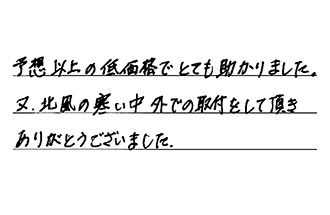 予想以上の低価格でとても助かりました。
又、北風の寒い中外での取付をして頂き
ありがとうございました.